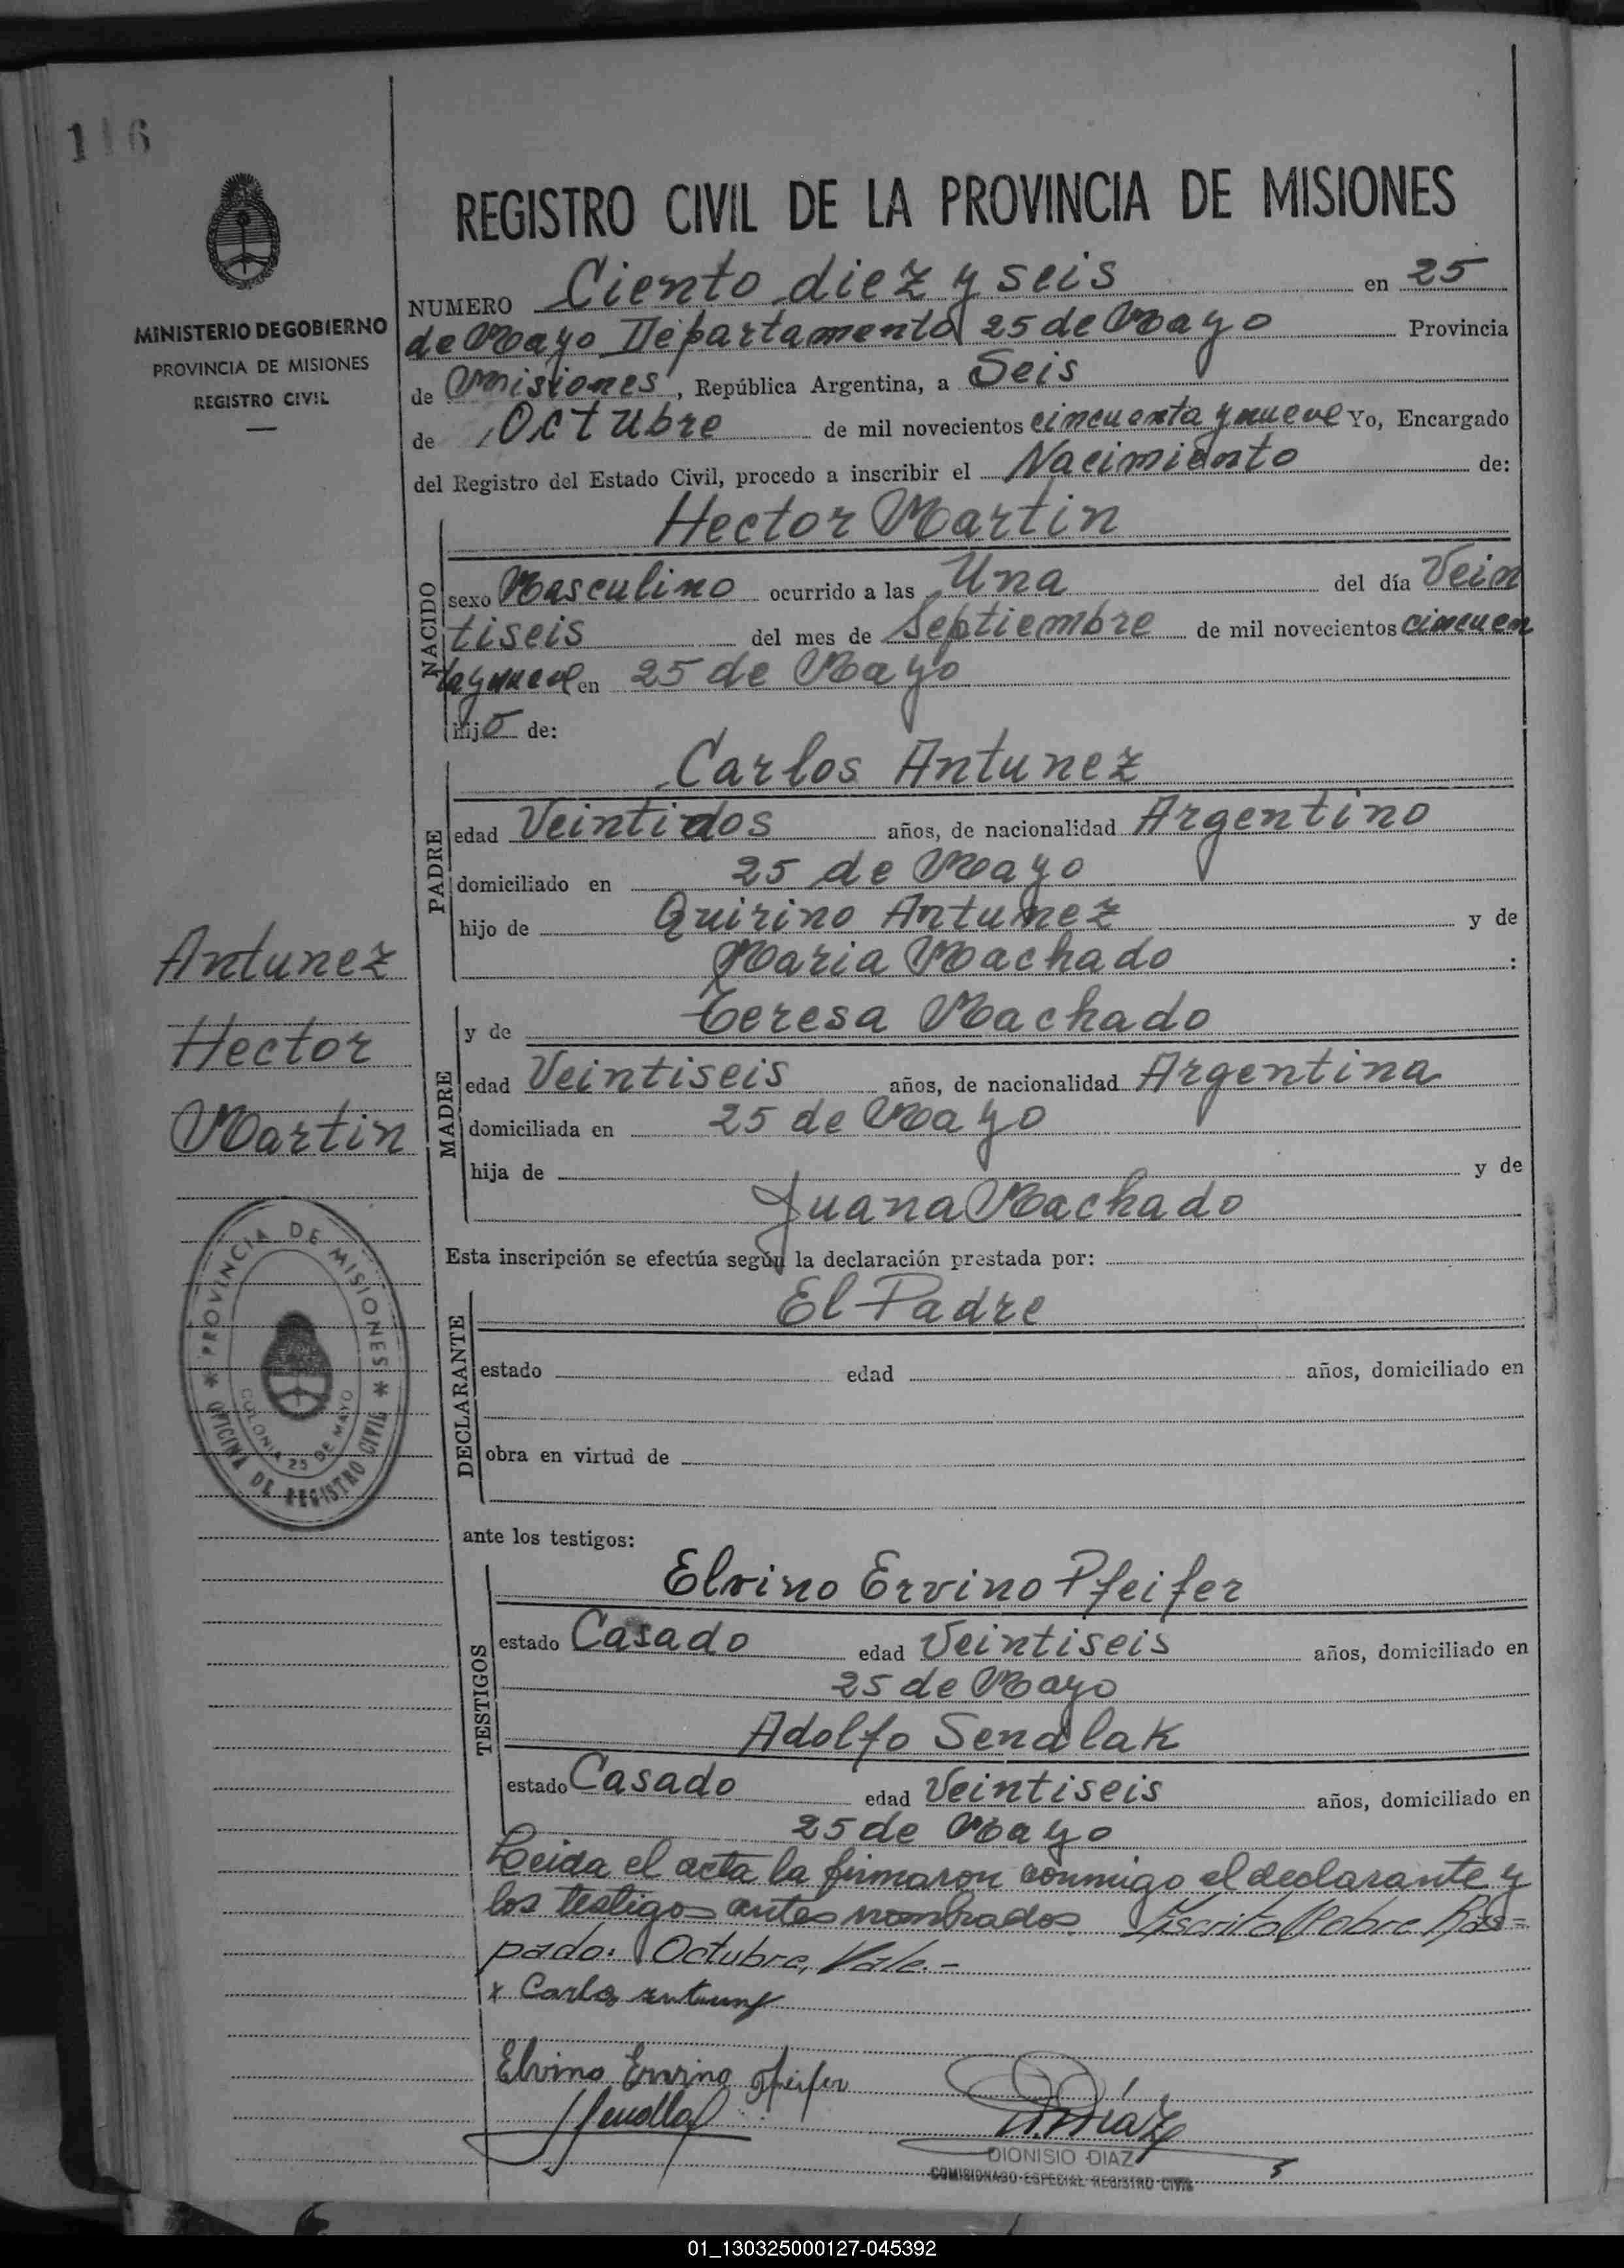 116
MINISTERIO DE GOBIERNO
PROVINCIA DE MISIONES
REGISTRO CIVIL
REGISTRO CIVIL DE LA PROVINCIA DE MISIONES
NUMERO Ciento diez y seis en 25
de Mayo Departamento 25 de Mayo Provincia
de Misiones, República Argentina, a Seis
de Octubre de mil novecientos cincuenta y nueve Yo, Encargado
del Registro del Estado Civil, procedo a inscribir el Nacimiento de:
NACIDO
Hector Martin
sexo Masculino ocurrido a las Una del día Vein
tiseis del mes de Septiembre de mil novecientos cincuen
tay nueve en 25 de Mayo
hijo de:
PADRE
Carlos Antunez
edad Veintidos años, de nacionalidad Argentino
domiciliado en 25 de Mayo
hijo de Quirino Antunez y de
Maria Machado :
Antunez
Hector
Martin
MADRE
y de Teresa Machado
edad Veintiseis años, de nacionalidad Argentina
domiciliada en 25 de Mayo
hija de y de
Juana Machado
Esta inscripción se efectúa según la declaración prestada por:
DECLARANTE
El Padre
estado edad años, domiciliado en
obra en virtud de
PROVINCIA DE MISIONES
OFICINA DE REGISTRO CIVIL
COLONIA 25 DE MAYO
ante los testigos:
TESTIGOS
Elvino Ervino Pfeifer
estado Casado edad Veintiseis años, domiciliado en
25 de Mayo
Adolfo Sendlak
estado Casado edad Veintiseis años, domiciliado en
25 de Mayo
Leida el acta la firmaron conmigo el declarante y
los testigos antes nombrados. Escrito Sobre Ras=
pado: Octubre, Vale.-
x Carlos Antunez
Elvino Ervino Pfeifer
DIONISIO DIAZ
COMISIONADO ESPECIAL REGISTRO CIVIL
01_130325000127-045392